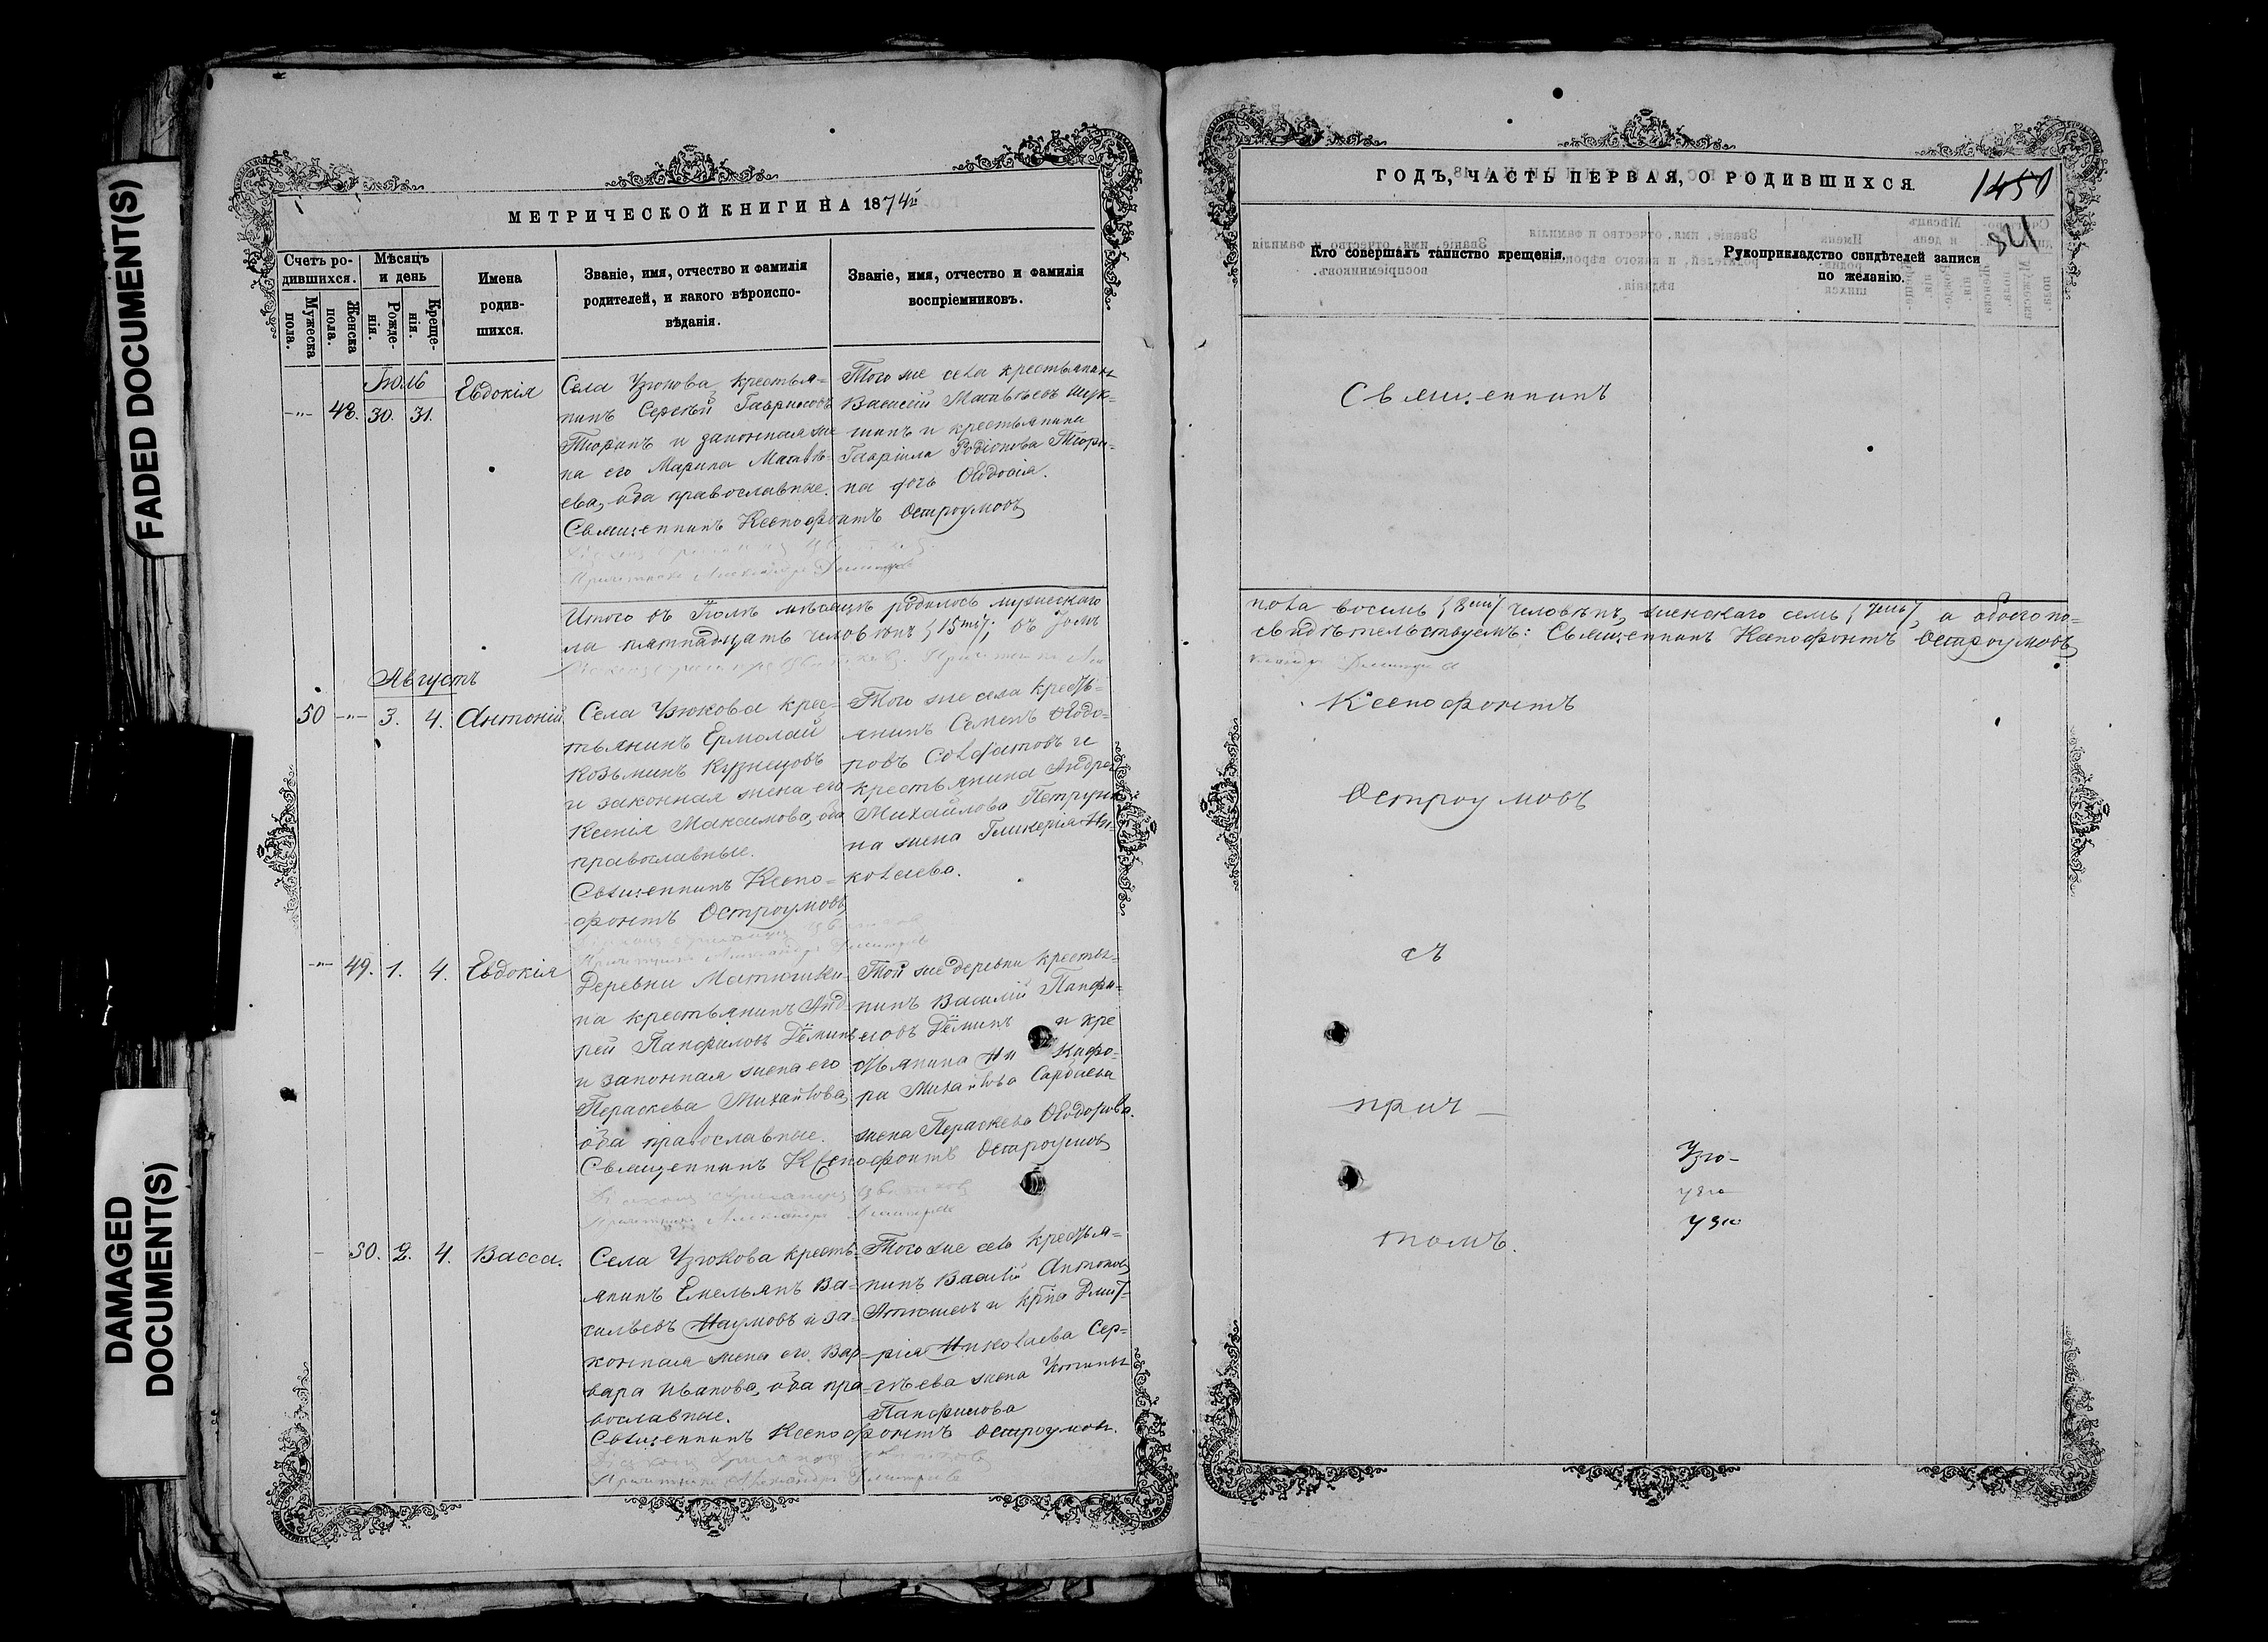 FADED DOCUMENT(S)
DAMAGED
DOCUMENT(S)
МЕТРИЧЕСКОЙ КНИГИ НА 1874й
Счетъ ро-
дившихся.
Мужеска
пола.
Женска
пола.
Мѣсяцъ
и день
Рожде-
нія.
Креще-
нія.
Имена
родив-
шихся.
Званіе, имя, отчество и фамилія
родителей, и какого вѣроиспо-
вѣданія.
Званіе, имя, отчество и фамилія
воспріемниковъ.
Іюль
48. 30. 31. Евдокія
Села Узюкова крестья-
нинъ Сергѣй Гавриловъ
Тюринъ и законная же
на его Марина Матвѣ-
ева, оба православные.
Того же села крестьянинъ
Василій Матвѣевъ
и крестьянина
Гавріила Родіонова Тюри-
на дочь Ѳеодосія.
Священникъ Ксенофонтъ Остроумовъ
Итого въ Іюлѣ мѣсяцѣ родилось мужескаго
ла пятнадцать человѣкъ (15ть); въ чемъ
Августъ
50 -"- 3. 4. Антоній
Села Узюкова крес-
тьянинъ Ермолай
Козьминъ Кузнецовъ
и законная жена его
Ксенія Максимова, оба
православные.
Священникъ Ксено-
фонтъ Остроумовъ
Того же села кресть-
янинъ Семенъ Ѳеодо-
ровъ Солдатовъ и
крестьянина Андрея
Михайлова Петруни
на жена Гликерія Ни-
колаева.
-"- 49. 1. 4. Евдокія
Деревни Матюшки-
на крестьянинъ Анд-
рей Панфиловъ Дёминъ
и законная жена его
Параскева Михайлова,
оба православные.
Той же деревни кресть-
нинъ Василій Панфи-
ловъ Дёминъ и кре
стьянина Ни кифо-
ра Михайлова
жена Параскева Ѳеодорова.
Священникъ Ксенофонтъ Остроумовъ
50. 2. 4. Васса.
Села Узюкова кресть-
янинъ Емельянъ Ва-
сильевъ Наумовъ и за-
конная жена его Вар-
вара Иванова, оба пра-
вославные.
Того же села крестья-
нинъ Василій Антоновъ
Артюшевъ и кр-на Дмит-
рія Николаева Сер-
гѣева жена
Панфилова
Священникъ Ксенофонтъ Остроумовъ.
ГОДЪ, ЧАСТЬ ПЕРВАЯ, О РОДИВШИХСЯ.
1450
821
Кто совершалъ таинство крещенія.
Рукоприкладство свидѣтелей записи
по желанію.
Священникъ
пола восемь (8мь) человѣкъ, женскаго семь (7мь), а обоего по-
свидѣтельствуемъ: Священникъ Ксенофонтъ Остроумовъ
Ксенофонтъ
Остроумовъ
съ
прич-
Узю-
узю
узю
томъ.